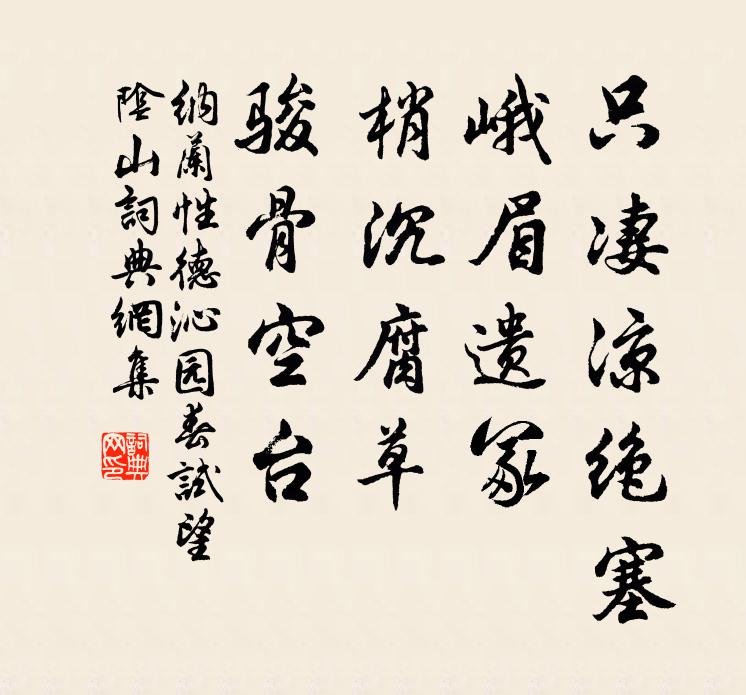 只凄凉绝塞
峨眉遗冢
梢沉腐草
骏骨空台
納蘭性德沁园春試望
陰山詞典網集
詞典网印